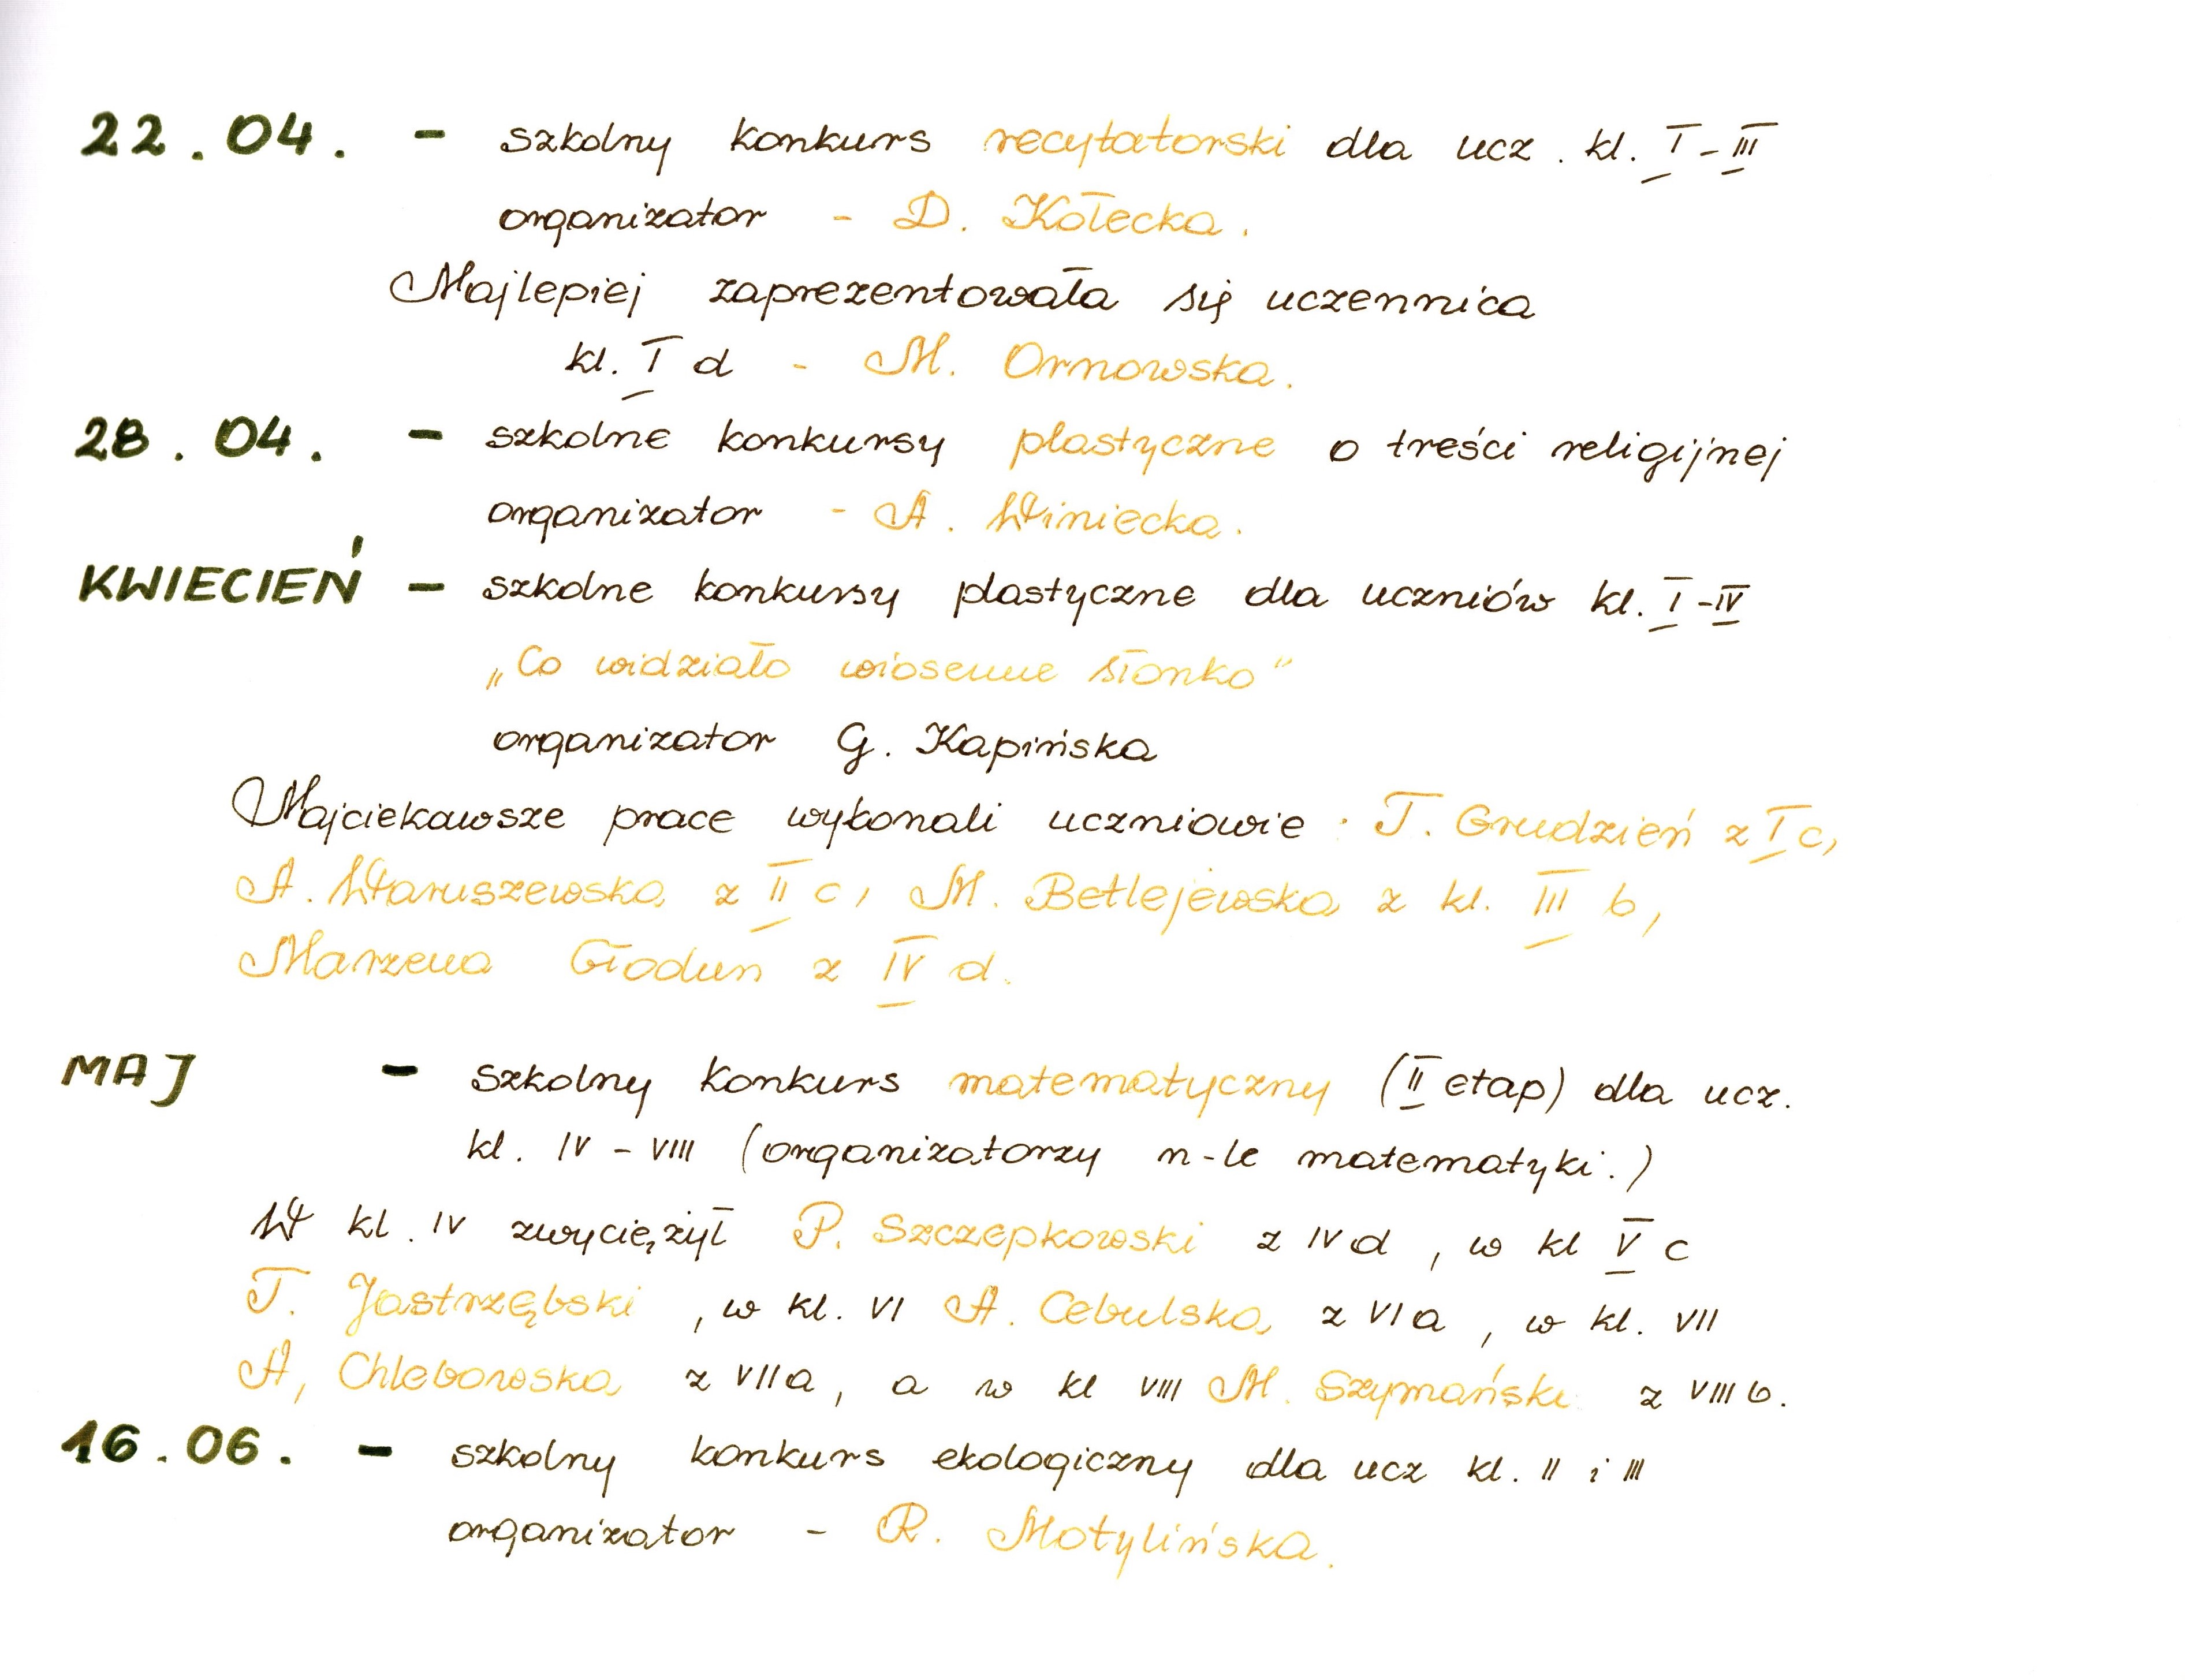 22.04. - szkolny konkurs recytatorski dla ucz. kl. I-III
organizator - D. Kołecka.
Najlepiej zaprezentowała się uczennica
kl. I d - M. Ornowska.
28.04. - szkolne konkursy plastyczne o treści religijnej
organizator - A. Winiecka.
KWIECIEŃ - szkolne konkursy plastyczne dla uczniów kl. I-IV
„Co widziało wiosenne słonko"
organizator G. Kapińska
Najciekawsze prace wykonali uczniowie: T. Grudzień z I c,
A. Waruszewska z II c, M. Betlejewska z kl. III b,
Marzena Głodun z IV d.
MAJ - szkolny konkurs matematyczny (II etap) dla ucz.
kl. IV - VIII (organizatorzy n-le matematyki.)
W kl. IV zwyciężył P. Szczepkowski z IV d, w kl V c
T. Jastrzębski, w kl. VI A. Cebulska z VI a, w kl. VII
A, Chlebowska z VII a, a w kl VIII M. Szymański z VIII b.
16.06. - szkolny konkurs ekologiczny dla ucz kl. II i III
organizator - R. Motylińska.